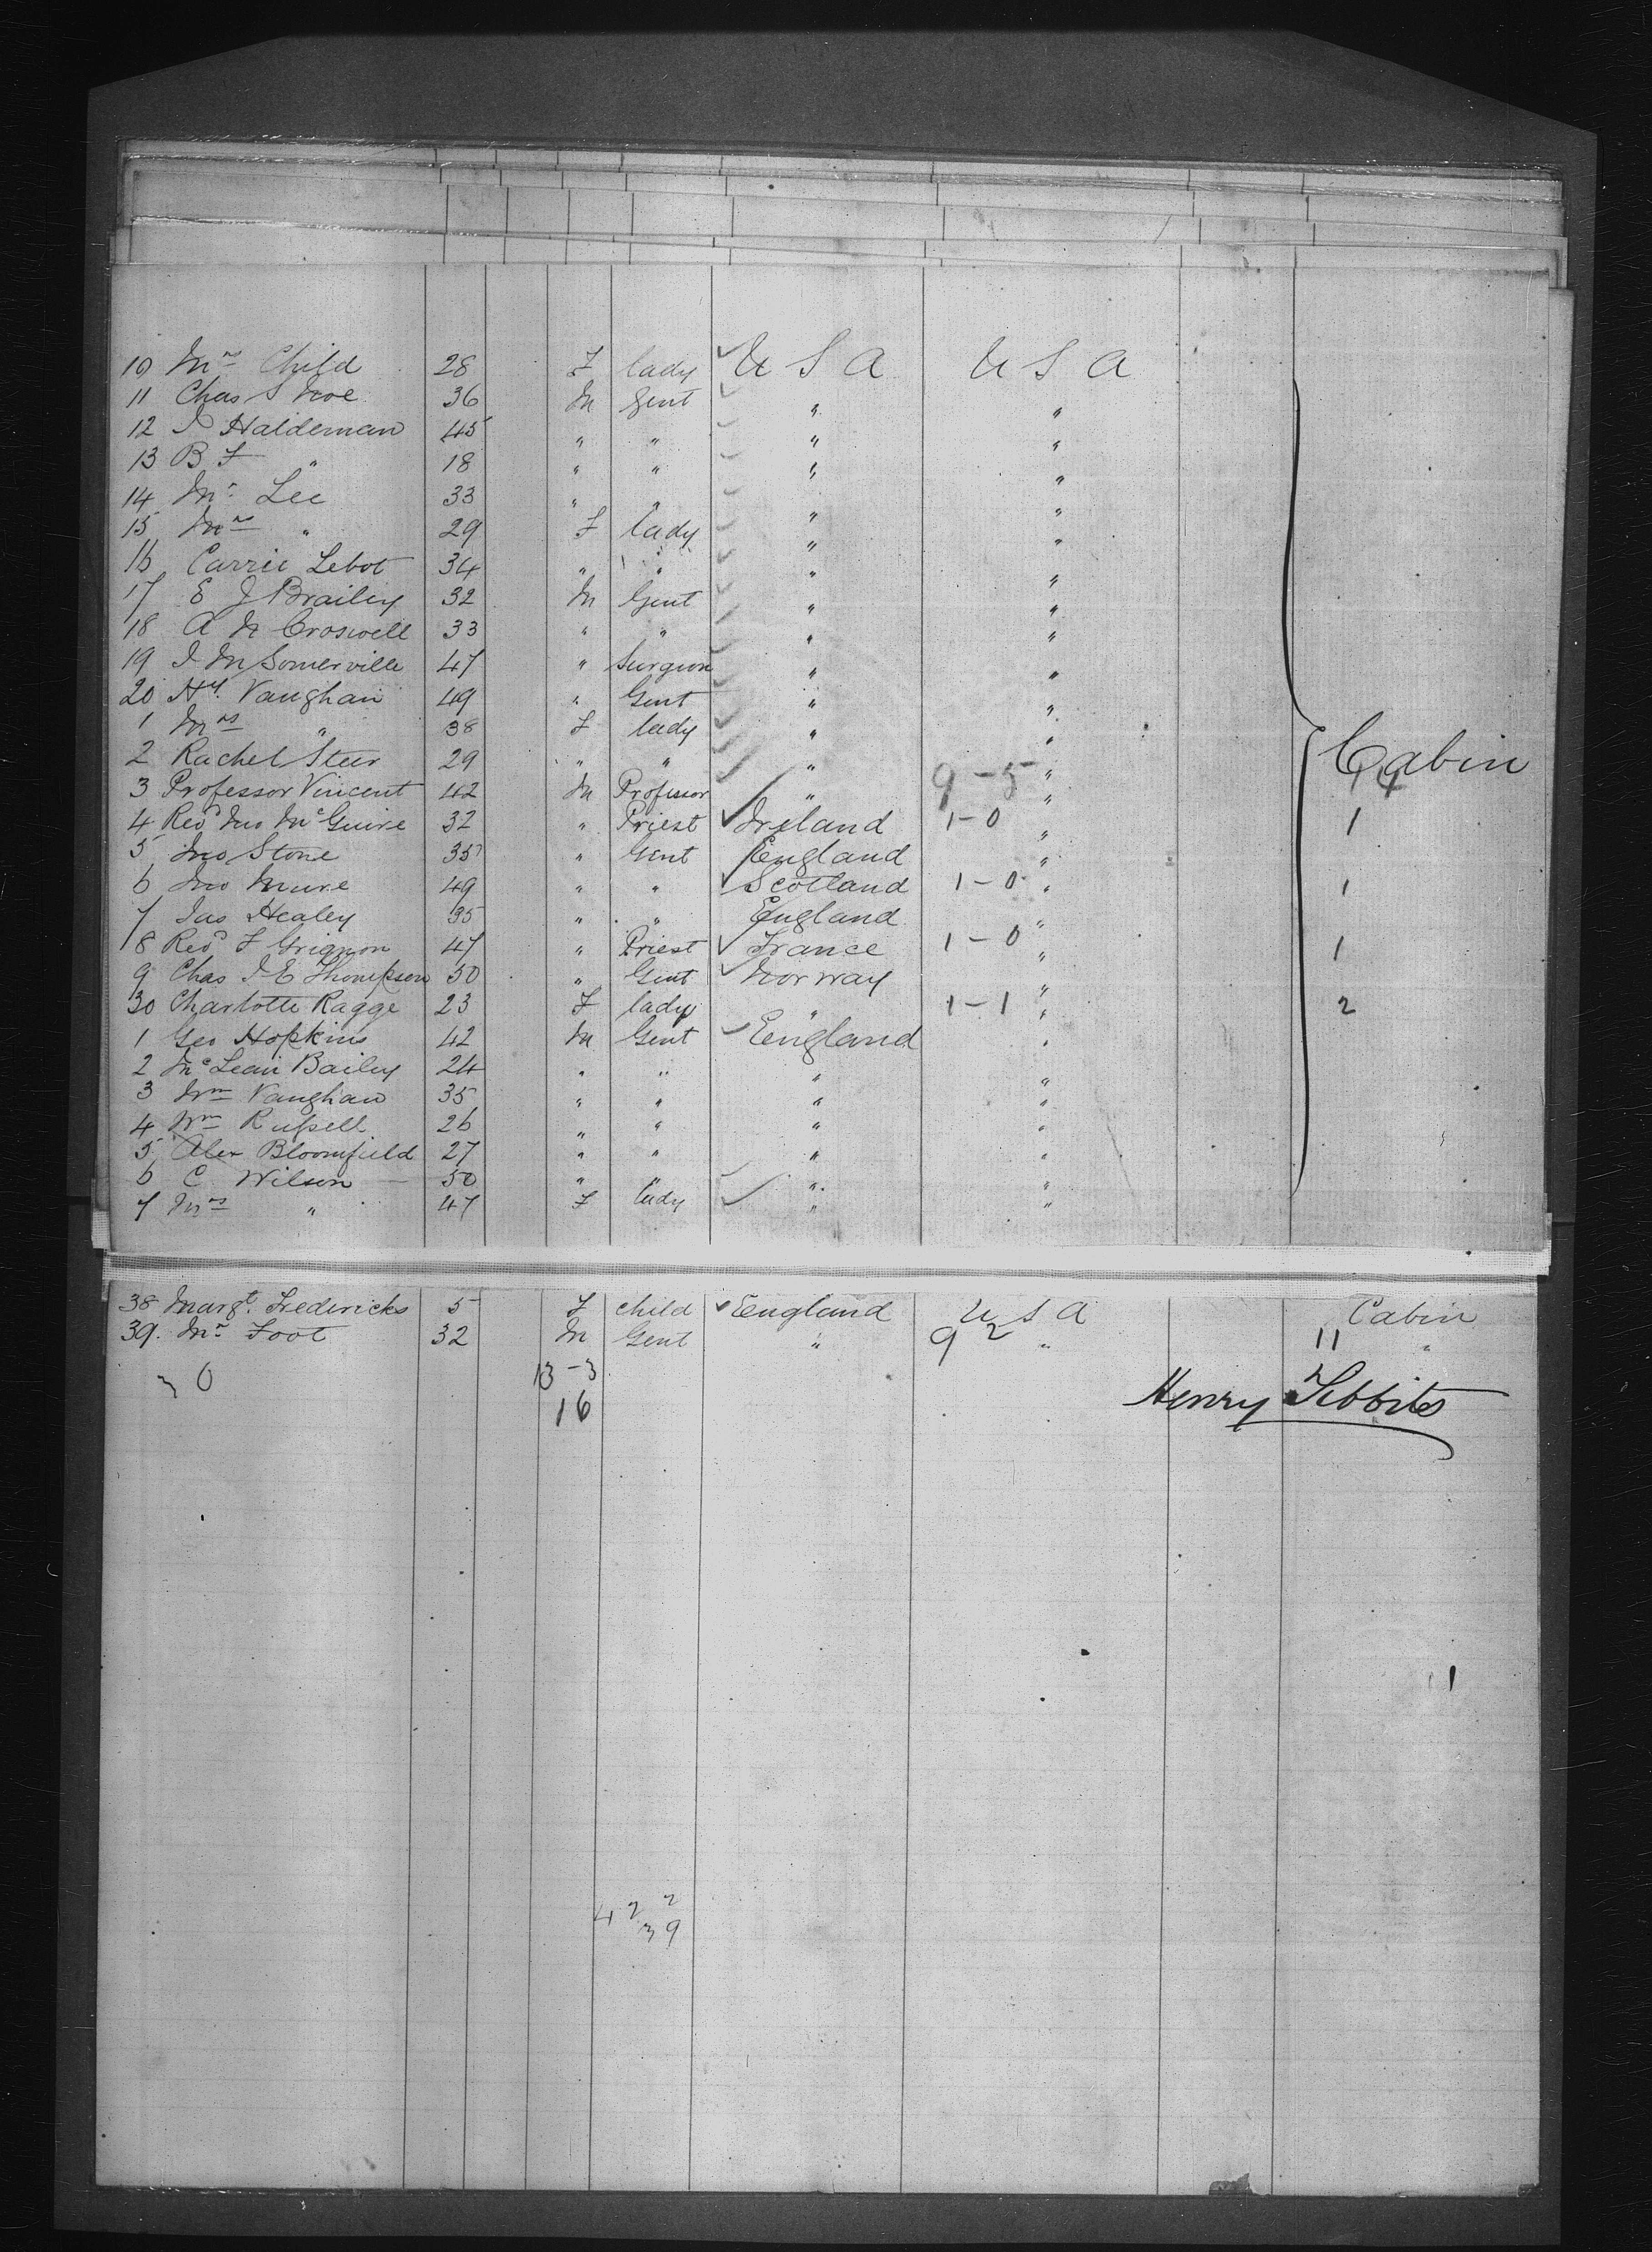 10 Mrs Child 28 F lady U S A U S A
11 Chas S Noe 36 M Gent " "
12 Haldeman 45 " " " "
13 B F " 18 " " " "
14 Mr Lee 33 " " " "
15 Mrs " 29 F lady " "
16 Carrie Lebot 34 " " " "
17 E J Brailey 32 M Gent " "
18 A N Croswell 33 " " " "
19 J M Somerville 47 " Surgeon " "
20 Hy. Vaughan 49 " Gent " "
1 Mrs " 38 F lady " "
2 Rachel Steer 29 " " " " Cabin
3 Professor Vincent 42 M Professor " 9-5 " 14
4 Revd Jno McGuire 32 " Priest Ireland 1-0 " 1
5 Jno Stone 35 " Gent England "
6 Jno Mure 49 " " Scotland 1-0 " 1
7 Jas Healey 35 " " England "
8 Revd F Grignon 47 " Priest France 1-0 " 1
9 Chas J E Thompson 50 " Gent Norway "
30 Charlotte Ragge 23 F lady " 1-1 " 2
1 Geo Hopkins 42 M Gent England "
2 McLean Bailey 24 " " " "
3 Wm Vaughan 35 " " " "
4 Wm Russell 26 " " " "
5 Alex Bloomfield 27 " " " "
6 C Wilson 50 " " " "
7 Mrs " 47 F lady " "
38 Margt. Fredericks 5 F child England U S A Cabin
39. Mr Foot 32 M Gent " 9 2 " 11 "
3 0 13-3
16 Henry Tebbits
1
4 2 2
39